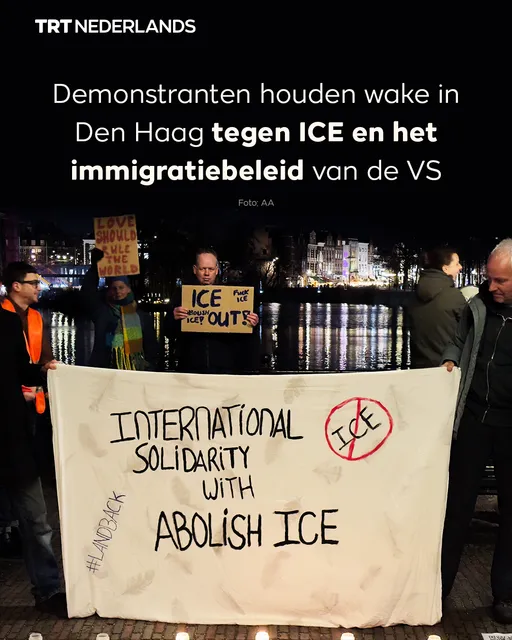 TRT NEDERLANDS
Demonstranten houden wake in
Den Haag tegen ICE en het
immigratiebeleid van de VS
Foto: AA
LOVE
SHOULD
RULE
THE
WORLD
ICE
FUCK
ICE
ABOLISH
ICE!
OUT!
INTERNATIONAL
SOLIDARITY
WITH
ABOLISH ICE
ICE
#LANDBACK